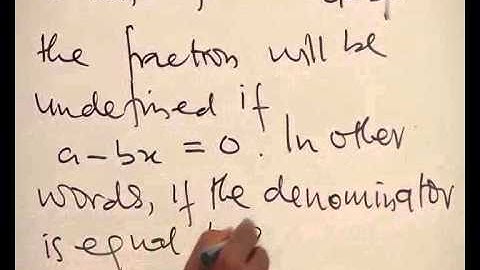 the fraction will be
undefined if
a-bx = 0. In other
words, if the denominator
is equal